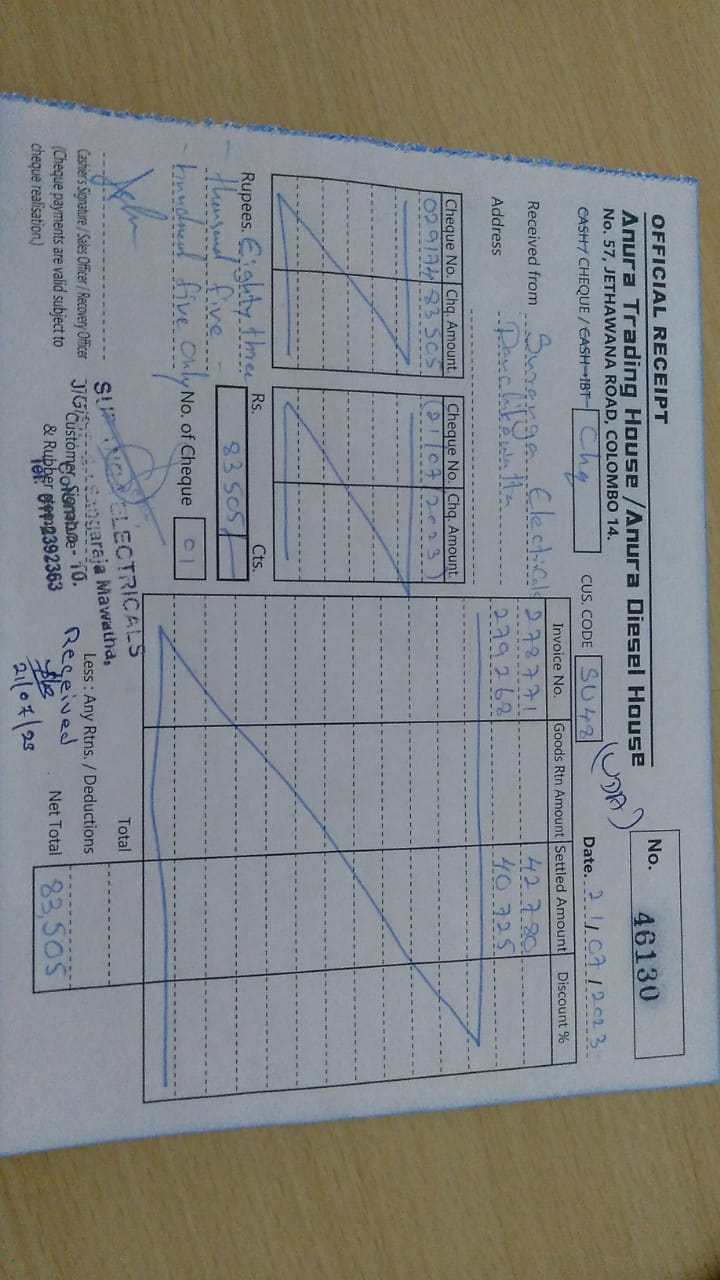 OFFICIAL RECEIPT
Anura Trading House / Anura Diesel House
No. 57, JETHAWANA ROAD, COLOMBO 14.
No. 46130
CASH / CHEQUE / CASH-IBT Chq
CUS. CODE SU48 (UDA)
Date. 21/07/2023
Received from Suranga Electricals
Address Panchikawatta
Cheque No. Chq. Amount Cheque No. Chq. Amount
029174 83505 (21/07/2023)
Invoice No. Goods Rtn Amount Settled Amount Discount %
278771 42780
279268 40725
Rupees. Eighty three
- thousand five -
- hundred five only
Rs. Cts.
83505/-
No. of Cheque 01
Total
Less : Any Rtns. / Deductions
Net Total 83,505
Casher's Signature / Sales Officer / Recovery Officer
(Cheque payments are valid subject to
cheque realisation.)
Customer Signature
ELECTRICALS
Mawatha,
- 10.
& Rubber
Tel: 011-2392363
Received
21/07/23